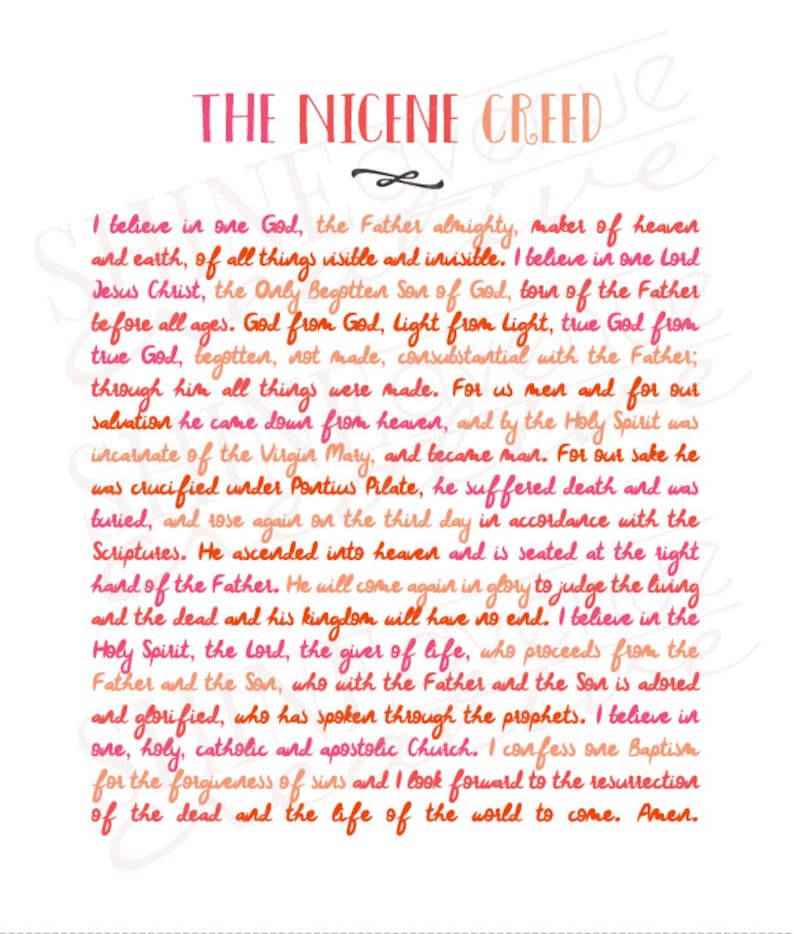 THE NICENE CREED
I believe in one God, the Father almighty, maker of heaven
and earth, of all things visible and invisible. I believe in one Lord
Jesus Christ, the Only Begotten Son of God, born of the Father
before all ages. God from God, Light from Light, true God from
true God, begotten, not made, consubstantial with the Father;
through him all things were made. For us men and for our
salvation he came down from heaven, and by the Holy Spirit was
incarnate of the Virgin Mary, and became man. For our sake he
was crucified under Pontius Pilate, he suffered death and was
buried, and rose again on the third day in accordance with the
Scriptures. He ascended into heaven and is seated at the right
hand of the Father. He will come again in glory to judge the living
and the dead and his kingdom will have no end. I believe in the
Holy Spirit, the Lord, the giver of life, who proceeds from the
Father and the Son, who with the Father and the Son is adored
and glorified, who has spoken through the prophets. I believe in
one, holy, catholic and apostolic Church. I confess one Baptism
for the forgiveness of sins and I look forward to the resurrection
of the dead and the life of the world to come. Amen.
SHINE avenue
SHINE avenue
SHINE avenue